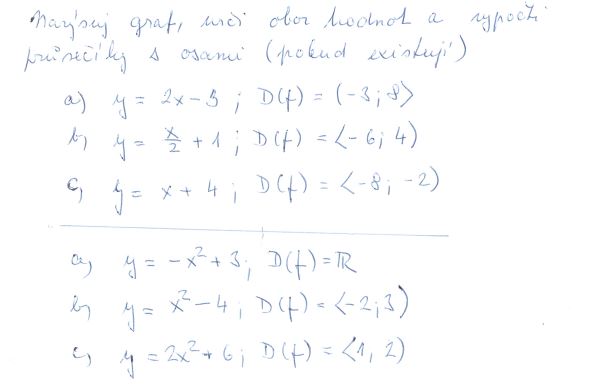 Narýsuj graf, urči obor hodnot a vypočti
průsečíky s osami (pokud existují)
a) y = 2x - 3 ; D(f) = (-3; 8⟩
b) y = x/2 + 1 ; D(f) = ⟨-6; 4)
c) y = x + 4 ; D(f) = ⟨-8; -2)
a) y = -x² + 3; D(f) = ℝ
b) y = x² - 4; D(f) = ⟨-2; 3)
c) y = 2x² + 6; D(f) = ⟨1, 2)